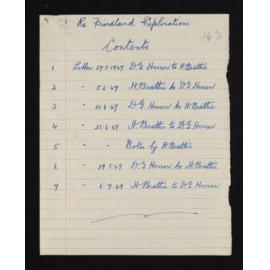 Re Fiordland Exploration
343
Contents
1 Letter 27.5.1949 D.G. Herron to H. Beattie
2 " 5.6.49 H. Beattie to D.G. Herron
3 " 12.6.49 D.G. Herron to H. Beattie
4 " 25.6.49 H. Beattie to D.G. Herron
5 " Notes by H. Beattie
6 " 19.5.49 D.G. Herron to H. Beattie
7 " 6.7.49 H. Beattie to D.G. Herron